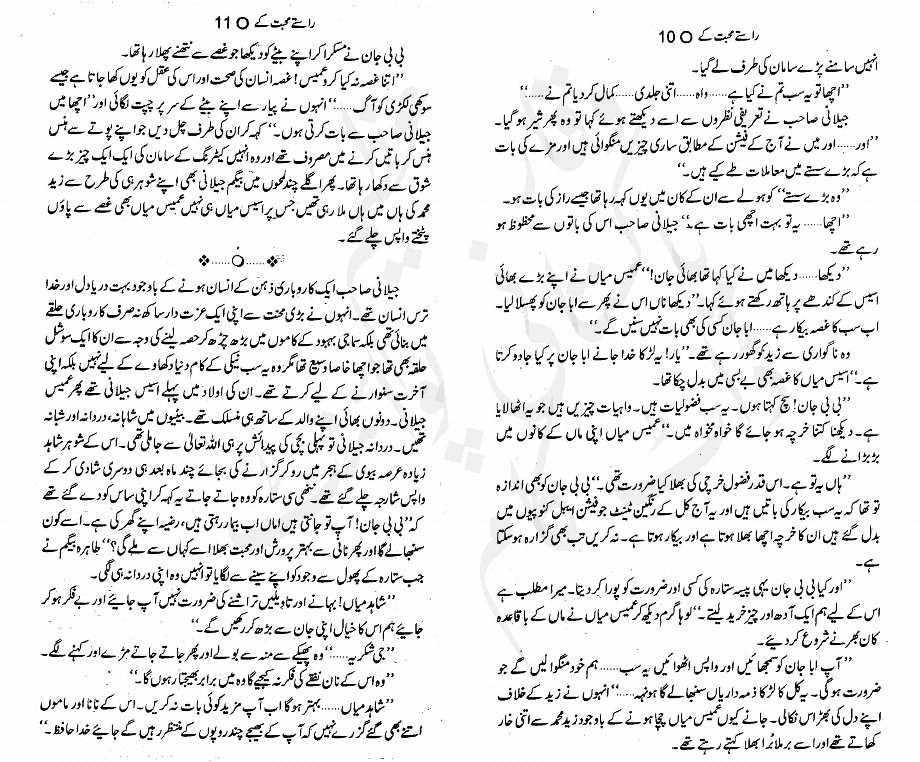 راستے محبت کے O 10
انہیں سامنے پڑے سامان کی طرف لے گیا۔
’’اچھا تو یہ سب تم نے کیا ہے...... واہ...... اتنی جلدی...... کمال کر دیا تم نے......‘‘
جیلانی صاحب نے تعریفی نظروں سے اسے دیکھتے ہوئے کہا تو وہ پھر شیر ہو گیا۔
’’اور...... اور میں نے آج کے فیشن کے مطابق ساری چیزیں منگوائی ہیں اور مزے کی بات
ہے کہ بڑے سستے میں معاملات طے کیے ہیں۔‘‘
’’وہ بڑے سستے‘‘ کو ہولے سے ان کے کان میں یوں کہہ رہا تھا جیسے راز کی بات ہو۔
’’اچھا...... یہ تو بہت اچھی بات ہے۔‘‘ جیلانی صاحب اس کی باتوں سے محظوظ ہو
رہے تھے۔
’’دیکھا...... دیکھا میں نے کیا کہا تھا بھائی جان!‘‘ عمیس میاں نے اپنے بڑے بھائی
اسیس کے کندھے پر ہاتھ رکھتے ہوئے کہا۔ ’’دیکھا ناں اس نے پھر سے ابا جان کو پھسلا لیا۔
اب سب کا غصہ بیکار ہے...... ابا جان کسی کی بھی بات نہیں سنیں گے۔‘‘
وہ ناگواری سے زید کو گھور رہے تھے۔ ’’یار! یہ لڑکا خدا جانے ابا جان پر کیا جادو کرتا
ہے۔‘‘ اسیس میاں کا غصہ بھی بے بسی میں بدل چکا تھا۔
’’بی بی جان! سچ کہتا ہوں۔ یہ سب فضولیات ہیں۔ واہیات چیزیں ہیں جو یہ اٹھا لایا
ہے۔ دیکھنا کتنا خرچہ ہو جائے گا خواہ مخواہ میں۔‘‘ عمیس میاں اپنی ماں کے کانوں میں
بڑبڑانے لگے۔
’’ہاں یہ تو ہے۔ اس قدر فضول خرچی کی بھلا کیا ضرورت تھی۔‘‘ بی بی جان کو بھی اندازہ
تو تھا کہ یہ سب بیکار کی باتیں ہیں اور یہ آج کل کے رنگین ٹینٹ جو فیشن ایبل کنوپیوں میں
بدل گئے ہیں ان کا خرچہ اچھا بھلا ہوتا ہے اور بیکار ہوتا ہے۔ نہ کریں تب بھی گزارہ ہو سکتا
ہے۔
’’اور کیا بی بی جان یہی پیسہ ستارہ کی کسی اور ضرورت کو پورا کر دیتا۔ میرا مطلب ہے
اس کے لیے ہم ایک آدھ اور چیز خرید لیتے۔‘‘ لوہا گرم دیکھ کر عمیس میاں نے ماں کے باقاعدہ
کان بھرنے شروع کر دیئے۔
’’آپ ابا جان کو سمجھائیں اور واپس اٹھوائیں یہ سب...... ہم خود منگوا لیں گے جو
ضرورت ہو گی۔ یہ کل کا لڑکا ذمہ داریاں سنبھالے گا ہونہہ......‘‘ انہوں نے زید کے خلاف
اپنے دل کی بھڑاس نکالی۔ جانے کیوں عمیس میاں چچا ہونے کے باوجود زید محمد سے اتنی خار
کھاتے تھے اور اسے برملا برا بھلا کہتے رہتے تھے۔
راستے محبت کے O 11
بی بی جان نے مسکرا کر اپنے بیٹے کو دیکھا جو غصے سے نتھنے پھلا رہا تھا۔
’’اتنا غصہ نہ کیا کرو عمیس! غصہ انسان کی صحت اور اس کی عقل کو یوں کھا جاتا ہے جیسے
سوکھی لکڑی کو آگ......‘‘ انہوں نے پیار سے اپنے بیٹے کے سر پر چپت لگائی اور ’’اچھا میں
جیلانی صاحب سے بات کرتی ہوں۔‘‘ کہہ کر ان کی طرف چل دیں جو اپنے پوتے سے ہنس
ہنس کر باتیں کرنے میں مصروف تھے اور وہ انہیں کیٹرنگ کے سامان کی ایک ایک چیز بڑے
شوق سے دکھا رہا تھا۔ پھر اگلے چند لمحوں میں بیگم جیلانی بھی اپنے شوہر ہی کی طرح سے زید
محمد کی ہاں میں ہاں ملا رہی تھیں جس پر اسیس میاں ہی نہیں عمیس میاں بھی غصے سے پاؤں
پٹختے واپس چلے گئے۔
❖......O......❖
جیلانی صاحب ایک کاروباری ذہن کے انسان ہونے کے باوجود بہت دریا دل اور خدا
ترس انسان تھے۔ انہوں نے بڑی محنت سے اپنی ایک عزت دار ساکھ نہ صرف کاروباری حلقے
میں بنائی تھی بلکہ سماجی بہبود کے کاموں میں بڑھ چڑھ کر حصہ لینے کی وجہ سے ان کا ایک سوشل
حلقہ بھی تھا جو اچھا خاصا وسیع تھا مگر وہ یہ سب نیکی کے کام دنیا دکھاوے کے لیے نہیں بلکہ اپنی
آخرت سنوارنے کے لیے کرتے تھے۔ ان کی اولاد میں پہلے اسیس جیلانی تھے پھر عمیس
جیلانی۔ دونوں بھائی اپنے والد کے ساتھ ہی منسلک تھے۔ بیٹیوں میں شاہانہ، دردانہ اور شبانہ
تھیں۔ دردانہ جیلانی تو پہلی بچی کی پیدائش پر ہی اللہ تعالیٰ سے جا ملی تھی۔ اس کے شوہر شاہد
زیادہ عرصہ بیوی کے ہجر میں رو کر گزارنے کی بجائے چند ماہ بعد ہی دوسری شادی کر کے
واپس شارجہ چلے گئے تھے۔ ننھی سی ستارہ کو وہ جاتے جاتے یہ کہہ کر اپنی ساس کو دے گئے تھے
کہ ’’بی بی جان! آپ تو جانتی ہیں اماں اب بیمار رہتی ہیں، رضیہ اپنے گھر کی ہے۔ اسے کون
سنبھالے گا اور پھر نانی سے بہتر پرورش اور محبت بھلا اسے کہاں سے ملے گی؟‘‘ طاہرہ بیگم نے
جب ستارہ کے پھول سے وجود کو اپنے سینے سے لگایا تو انہیں وہ اپنی دردانہ ہی لگی۔
’’شاہد میاں! بہانے اور تاویلیں تراشنے کی ضرورت نہیں آپ جائیے اور بے فکر ہو کر
جائیے ہم اس کا خیال اپنی جان سے بڑھ کر رکھیں گے۔‘‘
’’جی شکریہ......‘‘ وہ پھیکے سے منہ سے بولے اور پھر جاتے جاتے مڑے اور کہنے لگے۔
’’وہ اس کے نان نفقے کی فکر نہ کیجیے گا وہ میں برابر بھیجتا رہوں گا۔‘‘
’’شاہد میاں...... بہتر ہو گا اب آپ مزید کوئی بات نہ کریں۔ اس کے نانا اور ماموں
اتنے بھی گئے گزرے نہیں کہ آپ کے بھیجے چند روپوں کے منتظر رہیں گے جائیے خدا حافظ۔‘‘